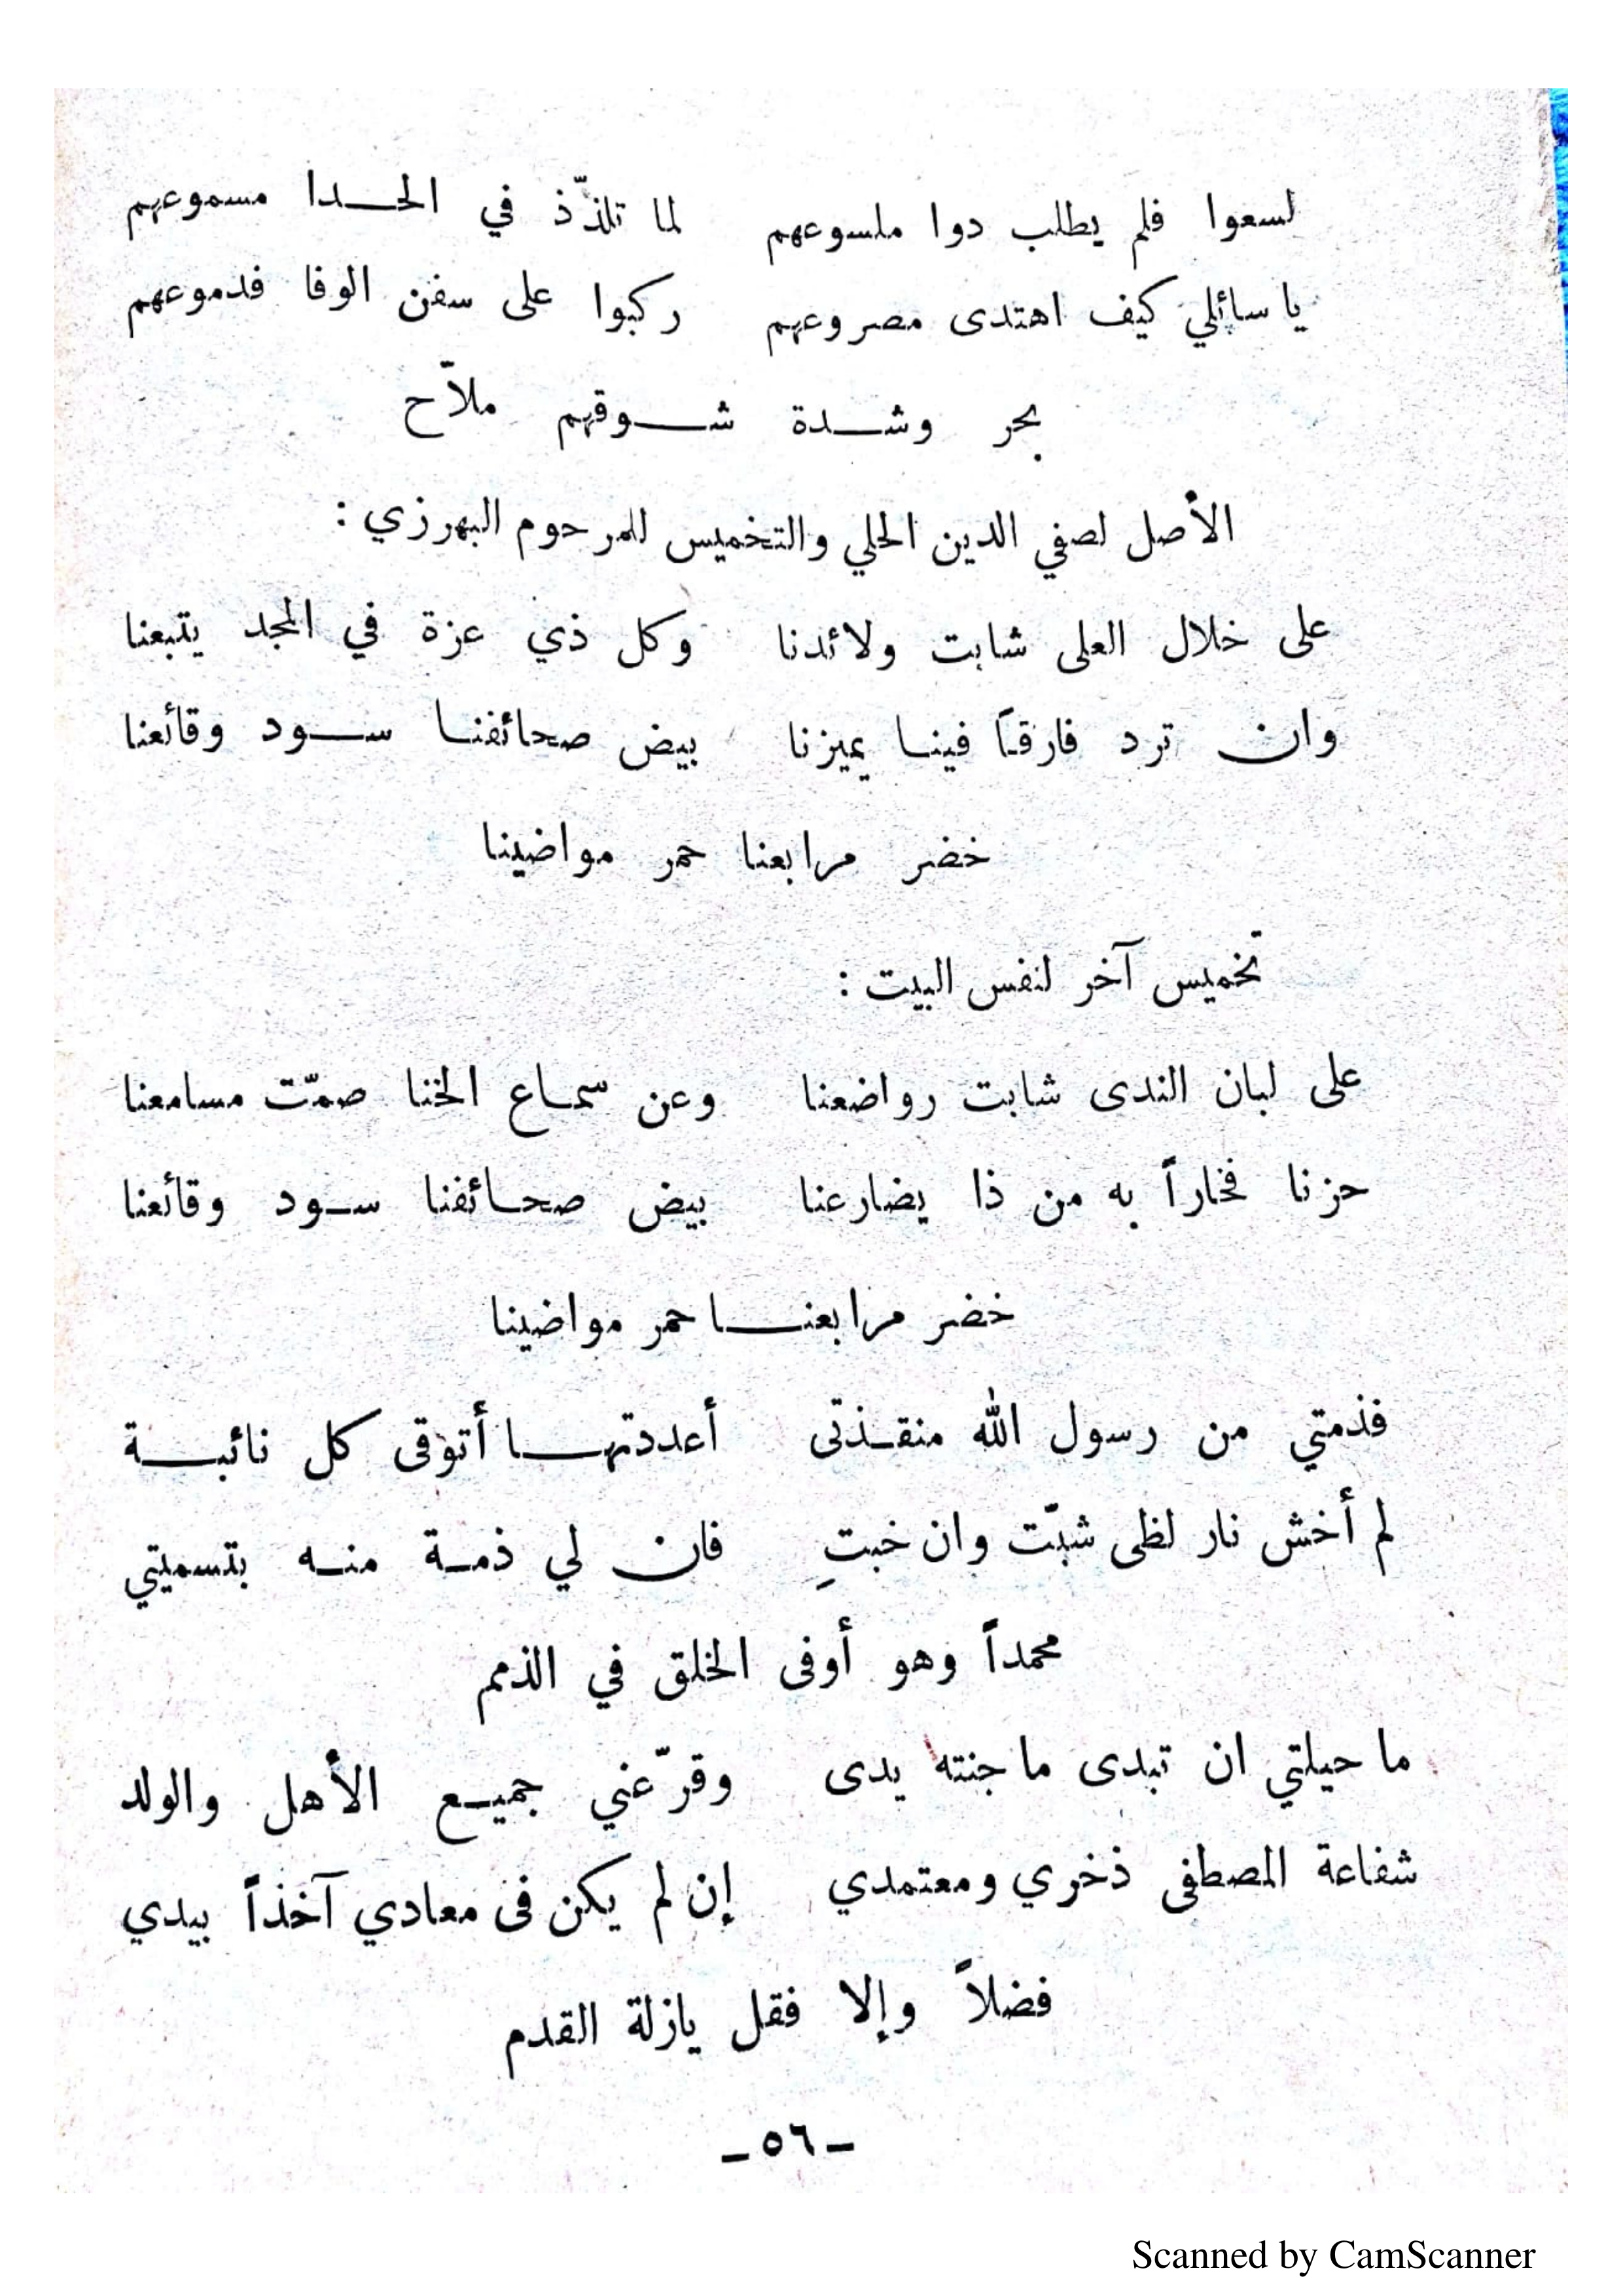 لسعوا فلم يطلب دوا ملسوعهم لما تلذّذ في الحدا مسموعهم
يا سائلي كيف اهتدى مصروعهم ركبوا على سفن الوفا فدموعهم
بحر وشدة شوقهم ملاّح
الأصل لصفي الدين الحلي والتخميس للمرحوم البهرزي :
على خلال العلى شابت ولائدنا وكل ذي عزة في المجد يتبعنا
وان ترد فارقاً فينا يميزنا بيض صحائفنا سود وقائعنا
خضر مرابعنا حمر مواضينا
تخميس آخر لنفس البيت :
على لبان الندى شابت رواضعنا وعن سماع الخنا صمّت مسامعنا
حزنا فخاراً به من ذا يضارعنا بيض صحائفنا سود وقائعنا
خضر مرابعنا حمر مواضينا
فذمتي من رسول الله منقذتى أعددتها أتوقى كل نائبة
لم أخش نار لظى شبّت وان خبتِ فان لي ذمة منه بتسميتي
محمداً وهو أوفى الخلق في الذمم
ما حيلتي ان تبدى ما جنته يدى وقرّعني جميع الأهل والولد
شفاعة المصطفى ذخري ومعتمدي إن لم يكن فى معادي آخذاً بيدي
فضلاً وإلا فقل يازلة القدم
ـ ٥٦ ـ
Scanned by CamScanner